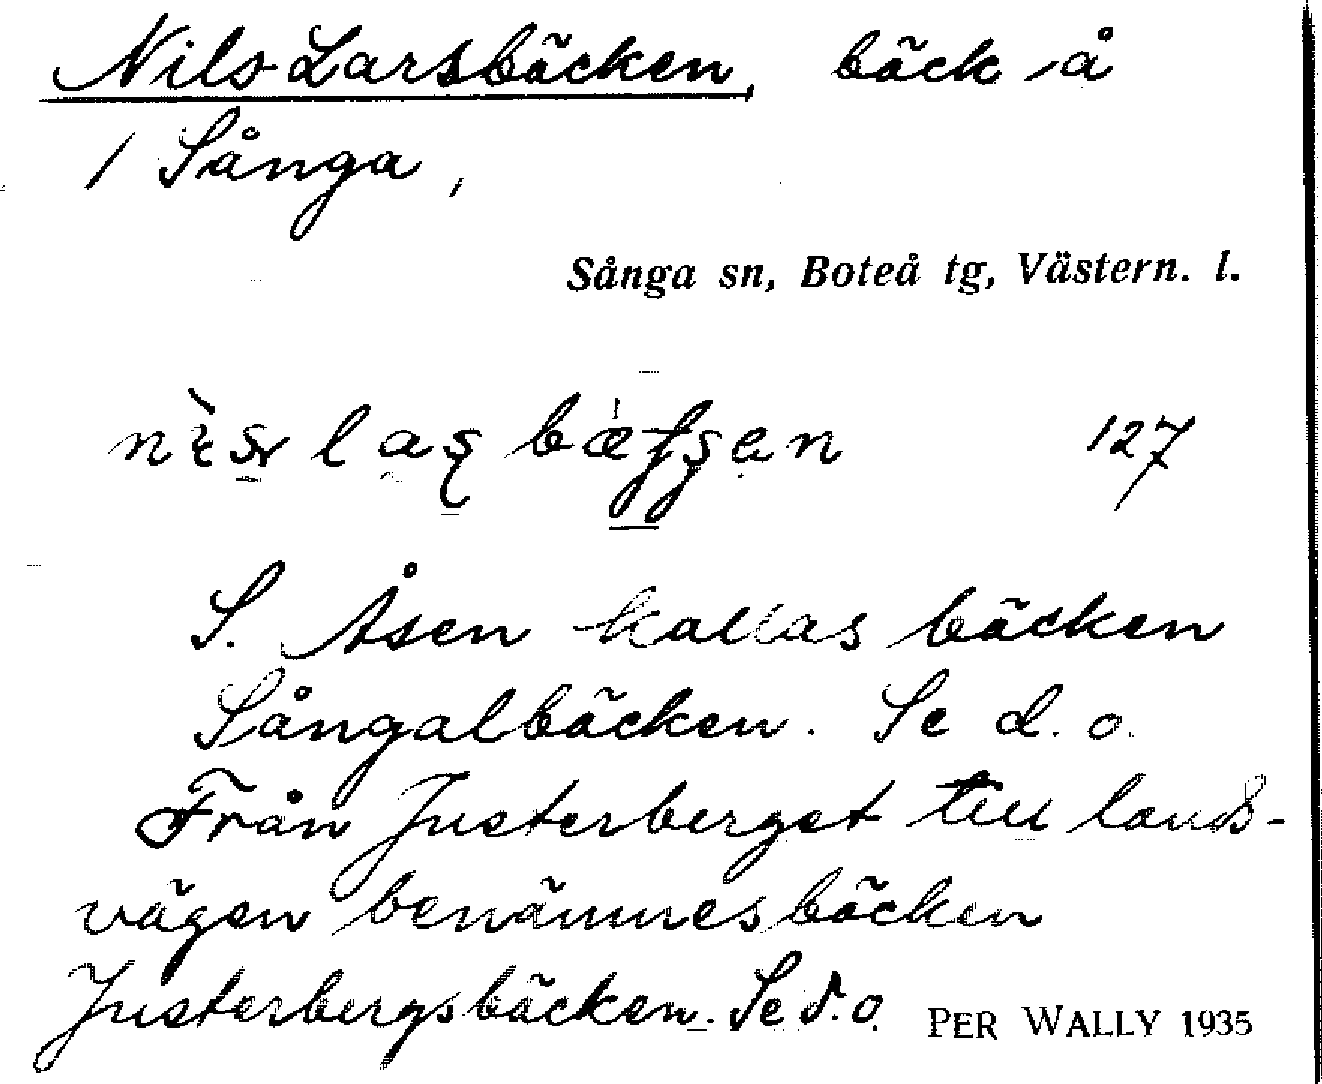 Nils Larsbäcken, bäck å
/ Sånga,
Sånga sn, Boteå tg, Västern. l.
127
S. Åsen kallas bäcken
Sångalbäcken. Se d. o.
Från Justerberget till lands-
vägen benämnes bäcken
Justerbergsbäcken. Se d. o. PER WALLY 1935